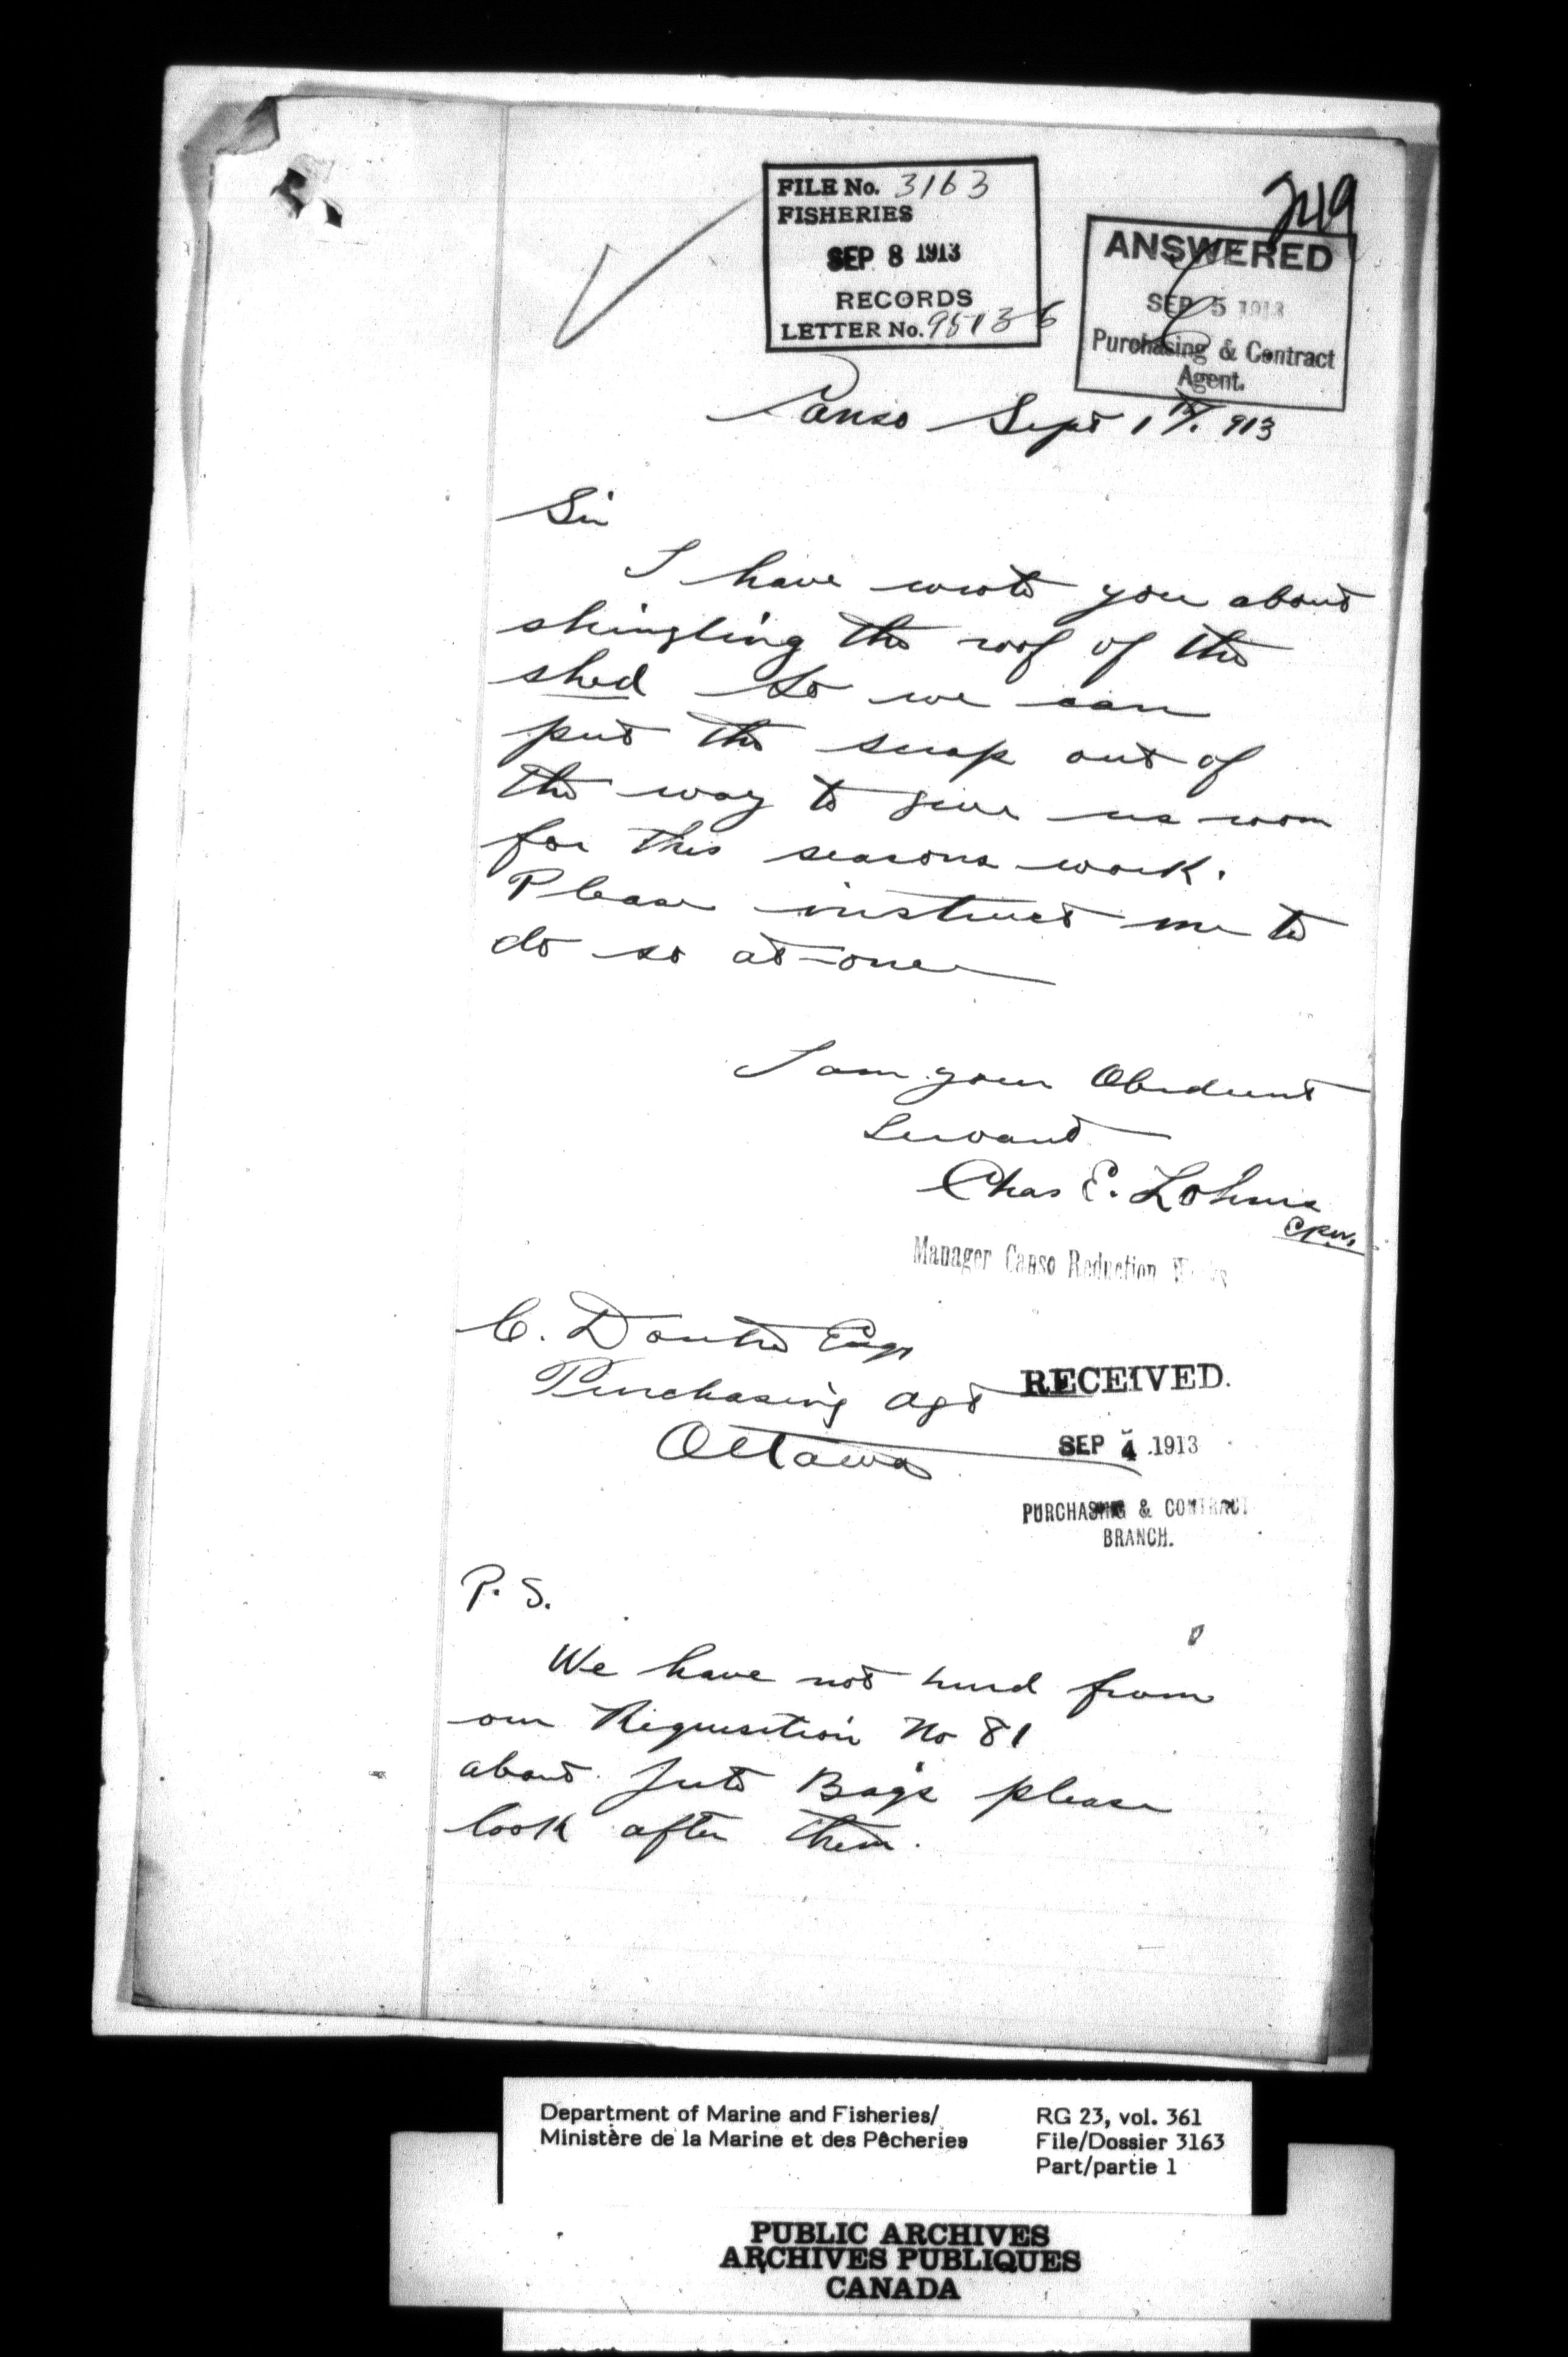 249
FILE No. 3163
FISHERIES
SEP 8 1913
RECORDS
LETTER No. 95136
ANSWERED
SEP 5 1913
Purchasing & Contract
Agent.
Canso Sept 1st 913
Sir
I have wrote you about
shingling the roof of the
shed so we can
put the scrap out of
the way to give us room
for this seasons work.
Please instruct me to
do so at once
I am your Obedient
Servant
Chas E. Lohnes
Manager Canso Reduction Works
C. Doutre Esqr
Purchasing Agt
Ottawa
RECEIVED.
SEP 4 1913
PURCHASING & CONTRACT
BRANCH.
P.S.
We have not hurd from
our Requisition No 81
about Jute Bags please
look after them.
Department of Marine and Fisheries/
Ministère de la Marine et des Pêcheries
RG 23, vol. 361
File/Dossier 3163
Part/partie 1
PUBLIC ARCHIVES
ARCHIVES PUBLIQUES
CANADA